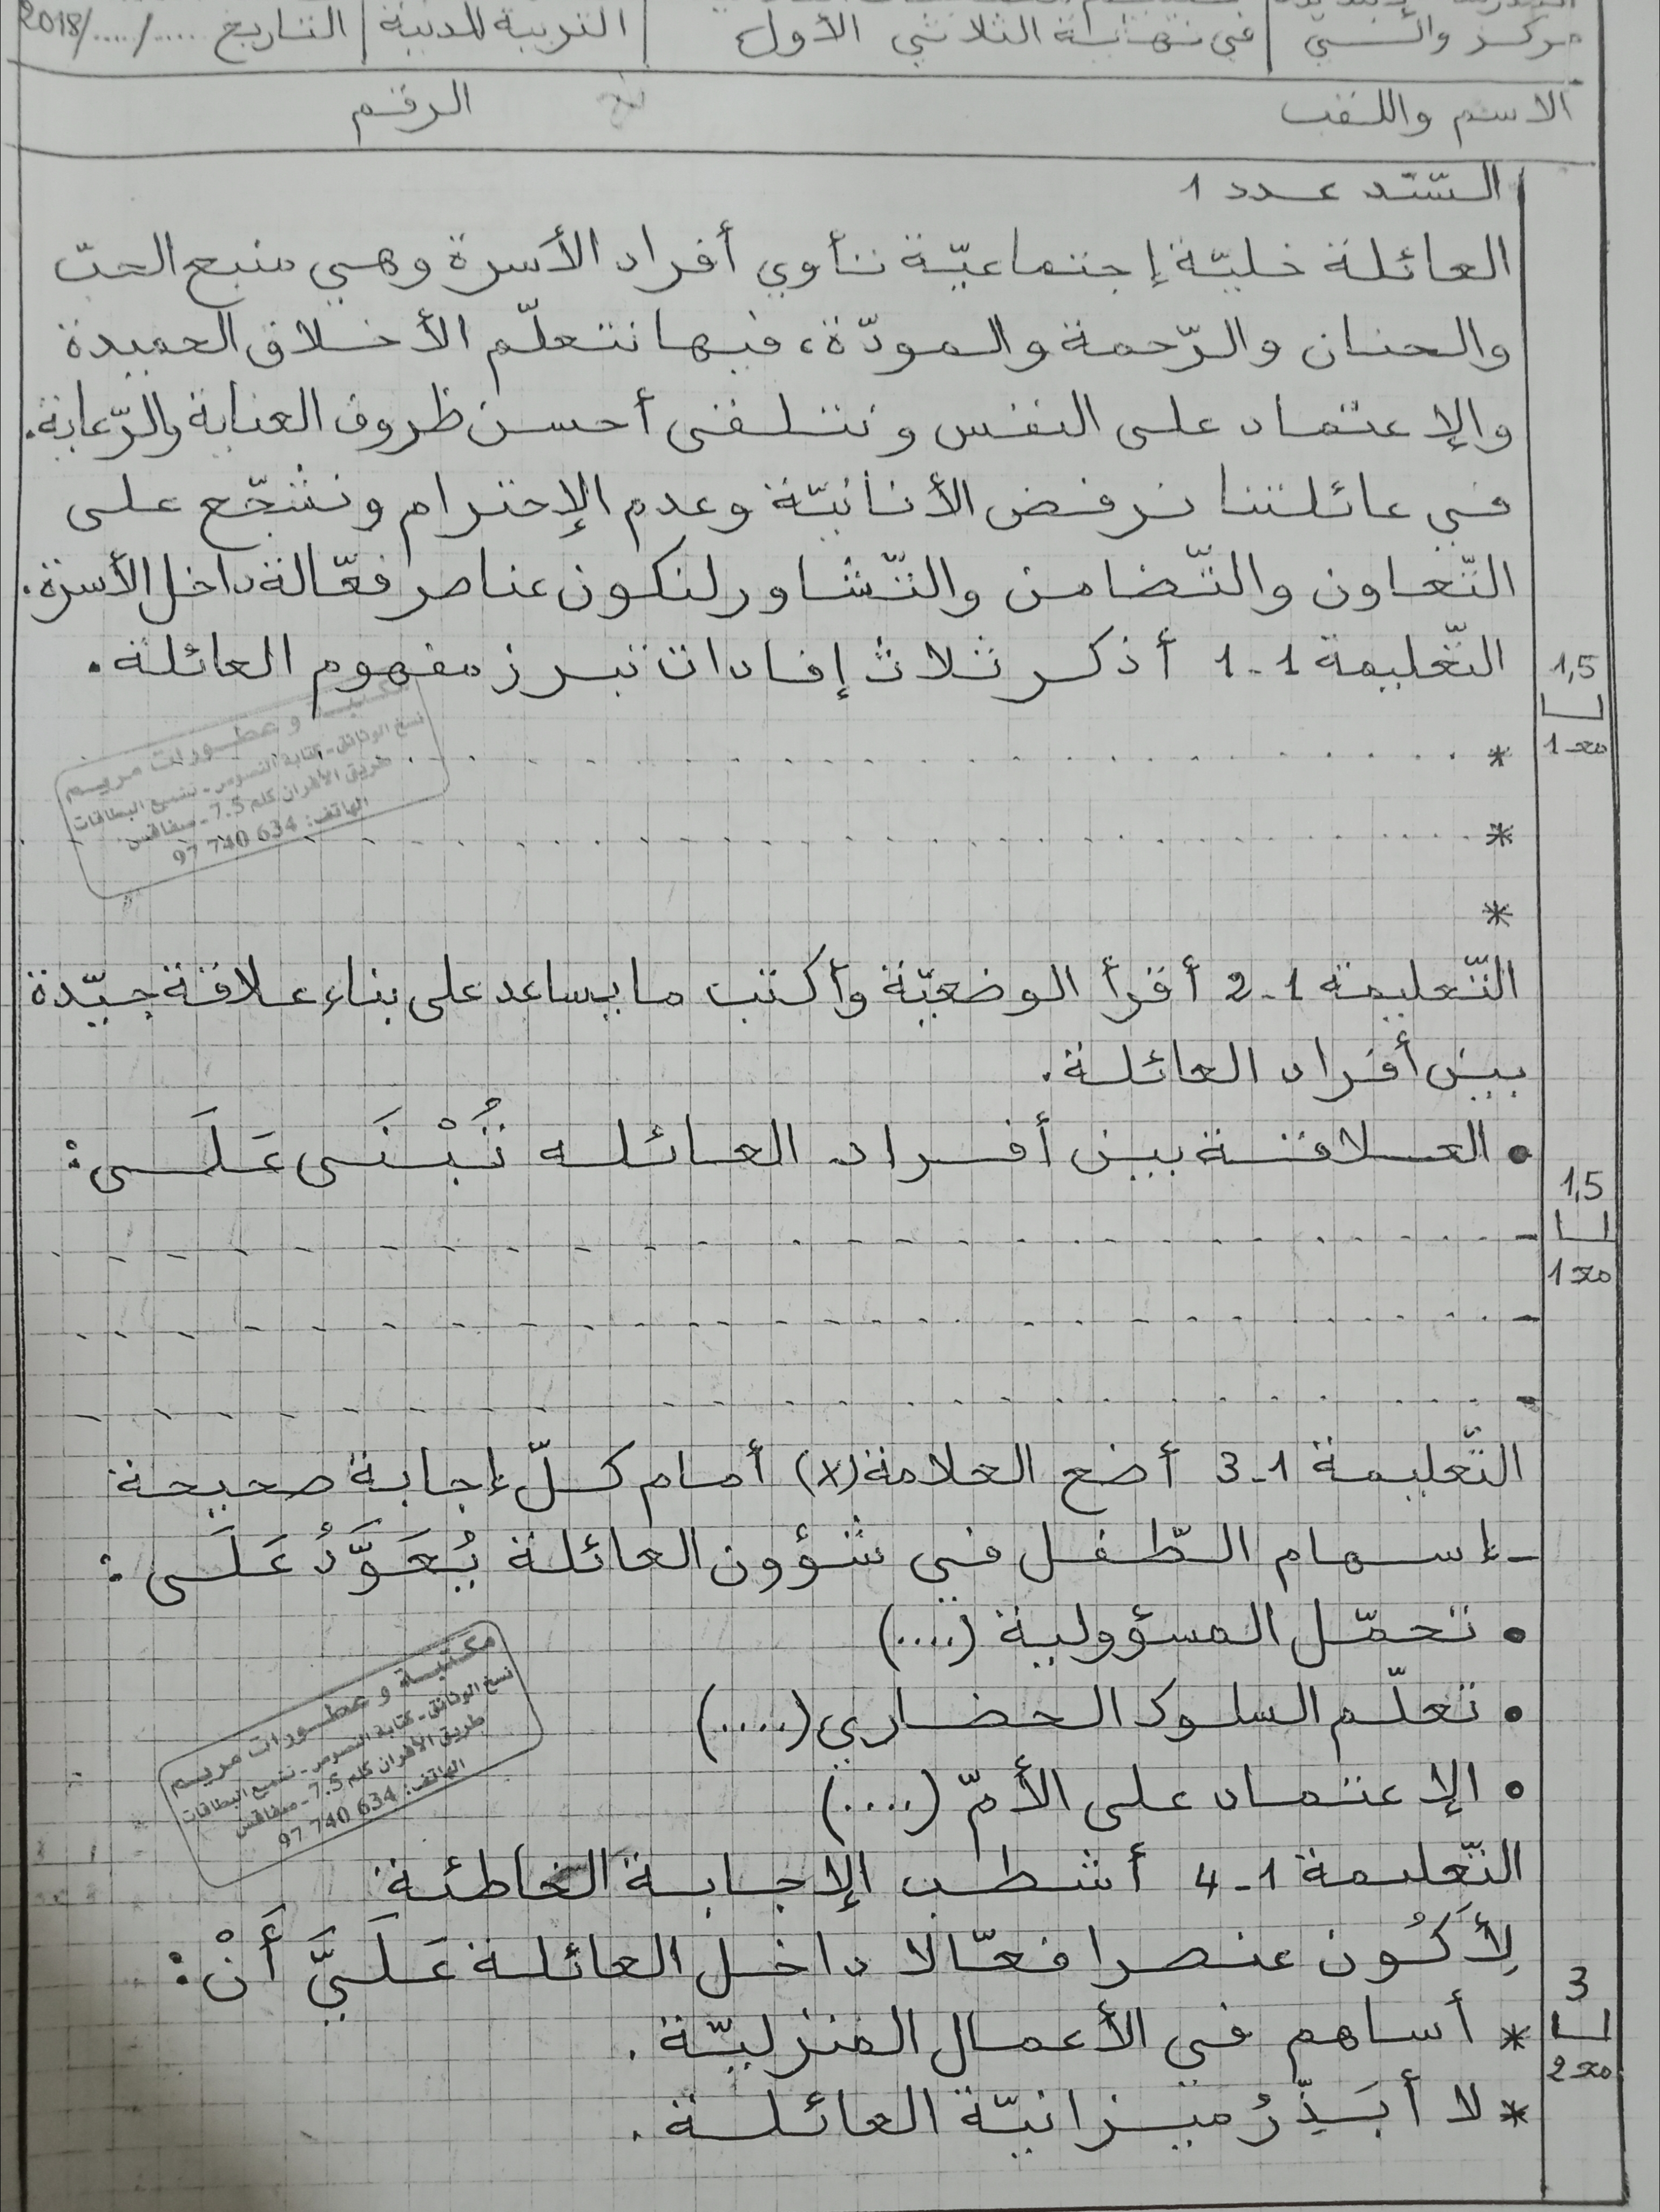 مركز والسي | في نهاية الثلاثي الأول | التربية المدنية | التاريخ ...../..../2018
الاسم واللقب الرقم
السند عدد 1
العائلة خليّة إجتماعيّة تأوي أفراد الأسرة وهي منبع الحبّ
والحنان والرّحمة والمودّة، فيها نتعلّم الأخلاق الحميدة
والإعتماد على النفس ونتلقى أحسن ظروف العناية والرّعاية.
في عائلتنا نرفض الأنانيّة وعدم الإحترام ونشجّع على
التّعاون والتّضامن والتّشاور لنكون عناصر فعّالة داخل الأسرة.
التّعليمة 1-1 أذكر ثلاث إفادات تبرز مفهوم العائلة.
1,5
مع 1
*
*
*
مكتبة و عطورات مريم
نسخ الوثائق - كتابة النصوص - تلميع البطاقات
طريق الأفران كلم 7.5 - صفاقس
الهاتف: 634 740 97
التّعليمة 1-2 أقرأ الوضعيّة وأكتب ما يساعد على بناء علاقة جيّدة
بين أفراد العائلة.
• العلاقة بين أفراد العائله تُبْنَى عَلَى:
1,5
مع 1
-
-
-
التّعليمة 1-3 أضع العلامة (x) أمام كلّ إجابة صحيحة
- إسهام الطّفل في شؤون العائلة يُعَوَّدُ عَلَى:
• تحمّل المسؤولية (....)
• تعلّم السلوك الحضاري (.....)
• الإعتماد على الأمّ (.....)
مكتبة و عطورات مريم
نسخ الوثائق - كتابة النصوص - تلميع البطاقات
طريق الأفران كلم 7.5 - صفاقس
الهاتف: 634 740 97
التّعليمة 1-4 أشطب الإجابة الخاطئة
لِأَكُون عنصرا فعّالا داخل العائلة عَلَيَّ أَنْ:
3
مع 2
* أساهم في الأعمال المنزليّة.
* لا أبَذِّرُ ميزانيّة العائلة.